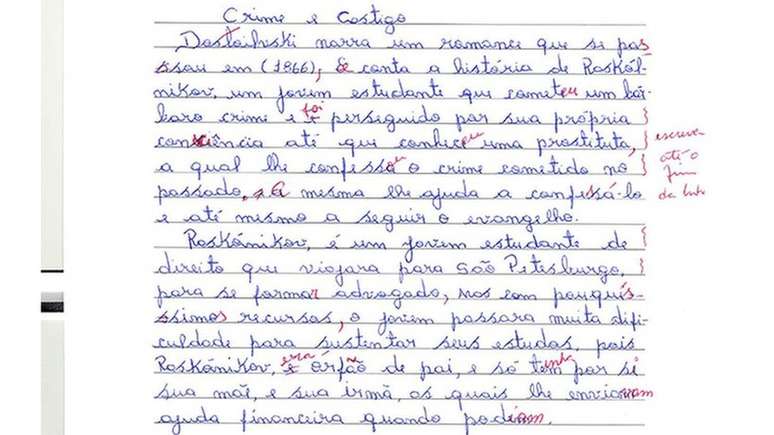 Crime e Castigo
Dostoiévski narra um romance que se pas
ssou em (1866), E conta a história de Raskól-
nikov, um jovem estudante que cometeu um bár-
baro crime e foi perseguido por sua própria
consciência até que conheceu uma prostituta, escrever
a qual lhe confessou o crime cometido no até o
passado, a mesma lhe ajuda a confessá-lo fim da linha
e até mesmo a seguir o evangelho.
Raskónikov, é um jovem estudante de
direito que viajara para São Petesburgo,
para se formar advogado, mas com pouquís-
ssimos recursos, o jovem passara muita difi-
culdade para sustentar seus estudos, pois
Raskónikov, era órfão de pai, e só tem por si
sua mãe, e sua irmã, os quais lhe enviavam
ajuda financeira quando podiam.